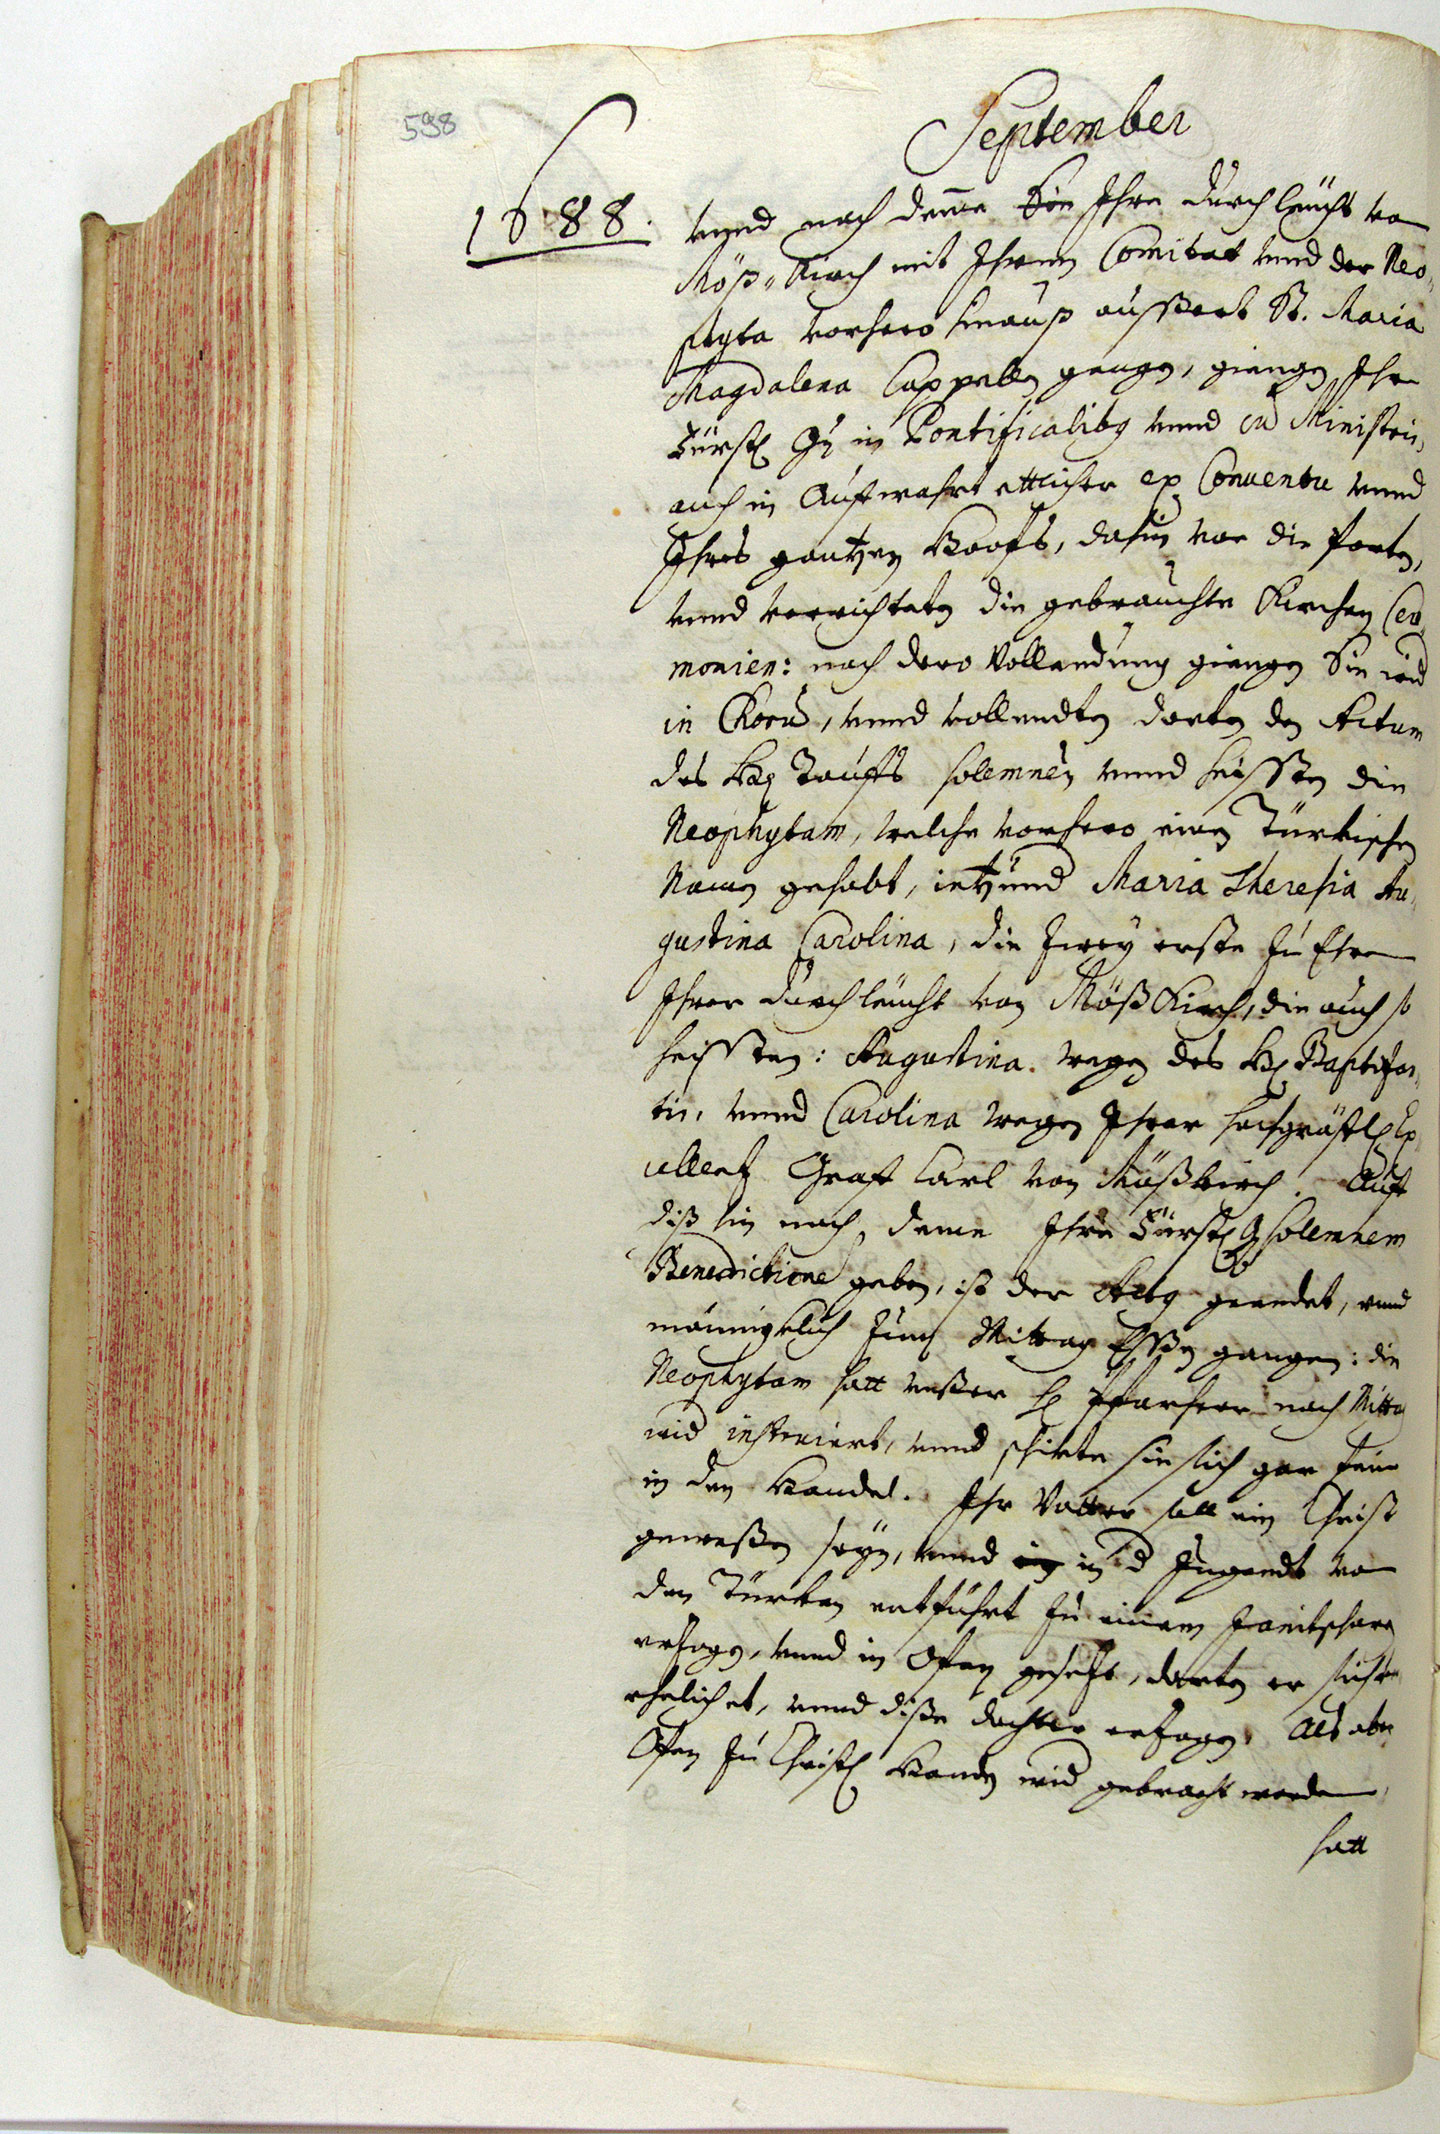 598
September
1688.
vnnd nach deme Ihre Durchleücht von
Möß-Kirch mit Ihrem Comitat vnnd der Neo-
phyta vorhero hinauß aussert St. Maria
Magdalena Cappellen gangen, giengen Ihr
Fürstl Gn in Pontificalibq vnnd cu Ministris,
auch in Auffwahrt ettlicher ex Conuentu vnnd
Ihres gantzen Hoofs, dahin vor die Porten,
vnnd verrichteten die gebrauchte Kirchen Cere-
monien: nach dero Vollendung giengen Sie wid
in Chorū, vnnd vollendten dorten den Actum
des Hl Tauffs solemnèn vnnd heissten die
Neophytam, welche vorhero einen Türkischen
Namen gehabt, ietzund Maria Theresia Au-
gustina Carolina, die zwey erste zu Ehren
Ihrer Durchleücht von Mößkirch, die auch so
heissten: Augustina. wegen des Hl Baptizan-
tis, vnnd Carolina wegen Ihrer hochgräffl Ex-
cellenz Graff Carl von Mößkirch. Auff
diß hin nach deme Ihre Fürstl G solemnem
Benedictione geben, ist der Actq geendet, vnnd
männigklich zum Mittag Essen gangen: die
Neophytam hatt vnßer H Pfarherr nach Mittag
wid instruiert, vnnd schickte sie sich gar fein
in den Handel. Ihr Vatter soll ein Christ
geweßen seyn, vnnd in d Jugendt von
den Türken entführt zu einem Janitscharen
erzogen, vnnd in Ofen gesetzt, dorten er sich ver-
ehelichet, vnnd diße dochter erzogen. Als aber
Ofen zu Christl Handen wid gebracht worden,
hatt